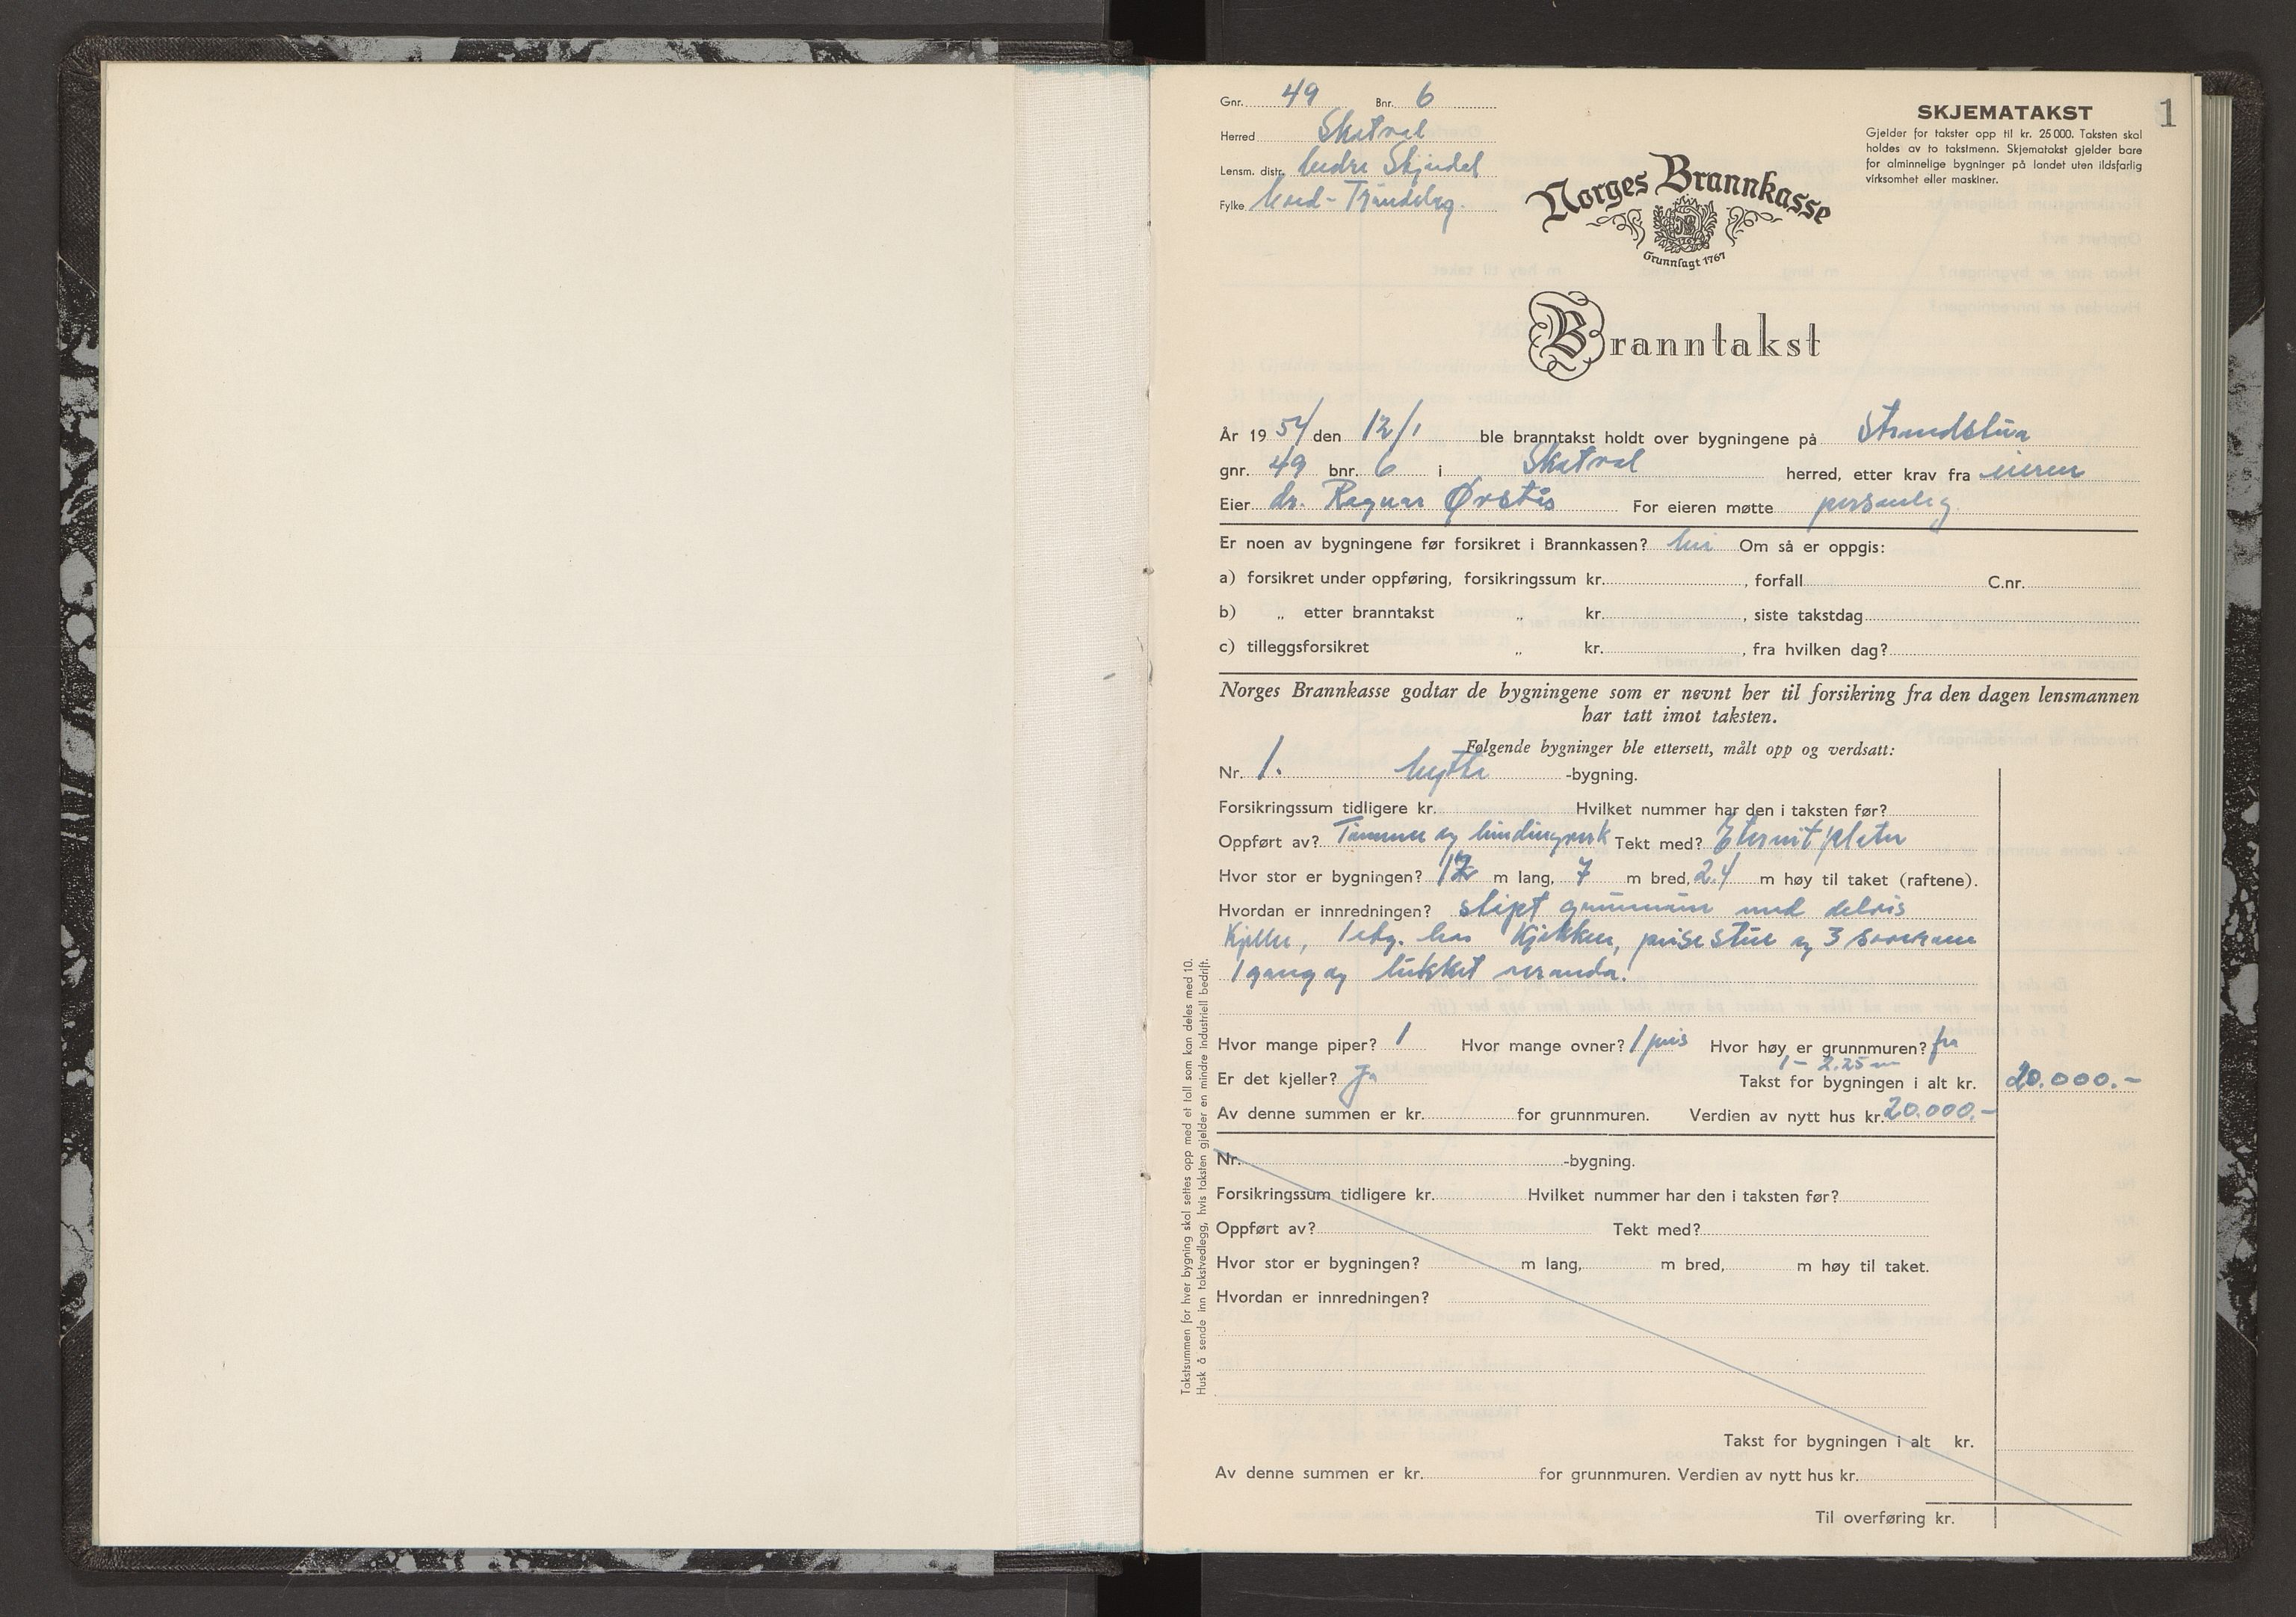 Gnr. 49 Bnr. 6
Herred Skatval
Lensm. distr. Nedre Stjørdal
Fylke Nord-Trøndelag.
SKJEMATAKST
1
Gjelder for takster opp til kr. 25 000. Taksten skal
holdes av to takstmenn. Skjematakst gjelder bare
for alminnelige bygninger på landet uten ildsfarlig
virksomhet eller maskiner.
Norges Brannkasse
Grunnlagt 1767
Branntakst
År 19 54 den 12/1 ble branntakst holdt over bygningene på Strandstua
gnr. 49 bnr. 6 i Skatval herred, etter krav fra eieren
Eier dr. Ragnar Ørstås For eieren møtte personleg
Er noen av bygningene før forsikret i Brannkassen? Nei Om så er oppgis:
a) forsikret under oppføring, forsikringssum kr. , forfall C.nr.
b) „ etter branntakst „ kr. , siste takstdag
c) tilleggsforsikret „ kr. , fra hvilken dag?
Norges Brannkasse godtar de bygningene som er nevnt her til forsikring fra den dagen lensmannen
har tatt imot taksten.
Følgende bygninger ble ettersett, målt opp og verdsatt:
Nr. 1. hytte -bygning.
Forsikringssum tidligere kr. Hvilket nummer har den i taksten før?
Oppført av? Tømmer og bindingverk Tekt med? Eternitplater
Hvor stor er bygningen? 12 m lang, 7 m bred, 2.4 m høy til taket (raftene).
Hvordan er innredningen? støpt grunnmur med delvis
Kjeller, 1 etg. har Kjøkken, peisestue og 3 soverom
1 gang og lukket veranda.
Hvor mange piper? 1 Hvor mange ovner? 1 peis Hvor høy er grunnmuren? fra
1 – 2.25 m
Er det kjeller? Ja Takst for bygningen i alt kr. 20.000.-
Av denne summen er kr. for grunnmuren. Verdien av nytt hus kr. 20.000.-
Nr. -bygning.
Forsikringssum tidligere kr. Hvilket nummer har den i taksten før?
Oppført av? Tekt med?
Hvor stor er bygningen? m lang, m bred, m høy til taket.
Hvordan er innredningen?
Takst for bygningen i alt kr.
Av denne summen er kr. for grunnmuren. Verdien av nytt hus kr.
Til overføring kr.
Takstsummen for hver bygning skal settes opp med et tall som kan deles med 10.
Husk å sende inn takstvedlegg, hvis taksten gjelder en mindre industriell bedrift.